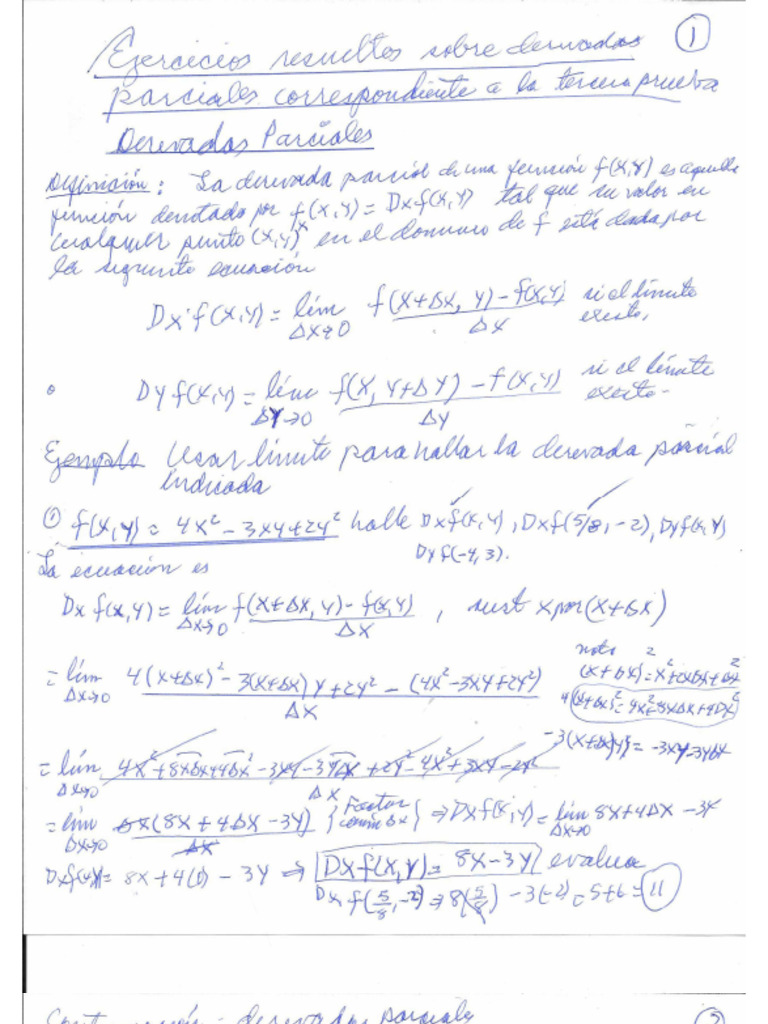 ①
Ejercicios resueltos sobre derivadas
parciales correspondiente a la tercera prueba
Derivadas Parciales
Definición: La derivada parcial de una función f(x,y) es aquella
función denotado por fx(x,y) = Dxf(x,y) tal que su valor en
cualquier punto (x,y) en el dominio de f está dada por
la siguiente ecuación
Dx f(x,y) = lím Δx→0 f(x+Δx, y) - f(x,y) / Δx si el límite existe,
o Dy f(x,y) = lím Δy→0 f(x, y+Δy) - f(x,y) / Δy si el límite existe.
Ejemplo Usar límite para hallar la derivada parcial
indicada
① f(x,y) = 4x² - 3xy + 2y² halle Dxf(x,y), Dxf(5/8, -2), Dyf(x,y)
Dyf(-4,3).
La ecuación es
Dx f(x,y) = lím Δx→0 f(x+Δx, y) - f(x,y) / Δx , sust x por (x+Δx)
nota
(x+Δx)² = x²+2xΔx+Δx²
= lím Δx→0 4(x+Δx)² - 3(x+Δx)y + 2y² - (4x² - 3xy + 2y²) / Δx
4(x+Δx)² = 4x²+8xΔx+4Δx²
-3(x+Δx)y = -3xy-3yΔx
= lím Δx→0 4x² + 8xΔx + 4Δx² - 3xy - 3yΔx + 2y² - 4x² + 3xy - 2y² / Δx
= lím Δx→0 Δx(8x + 4Δx - 3y) / Δx {Factor común Δx} ⇒ Dxf(x,y) = lím Δx→0 8x+4Δx - 3y
Dxf(x,y) = 8x + 4(0) - 3y ⇒ Dxf(x,y) = 8x - 3y evalua
Dx f(5/8, -2) ⇒ 8(5/8) - 3(-2) = 5+6 = 11
derivadas parciales
②